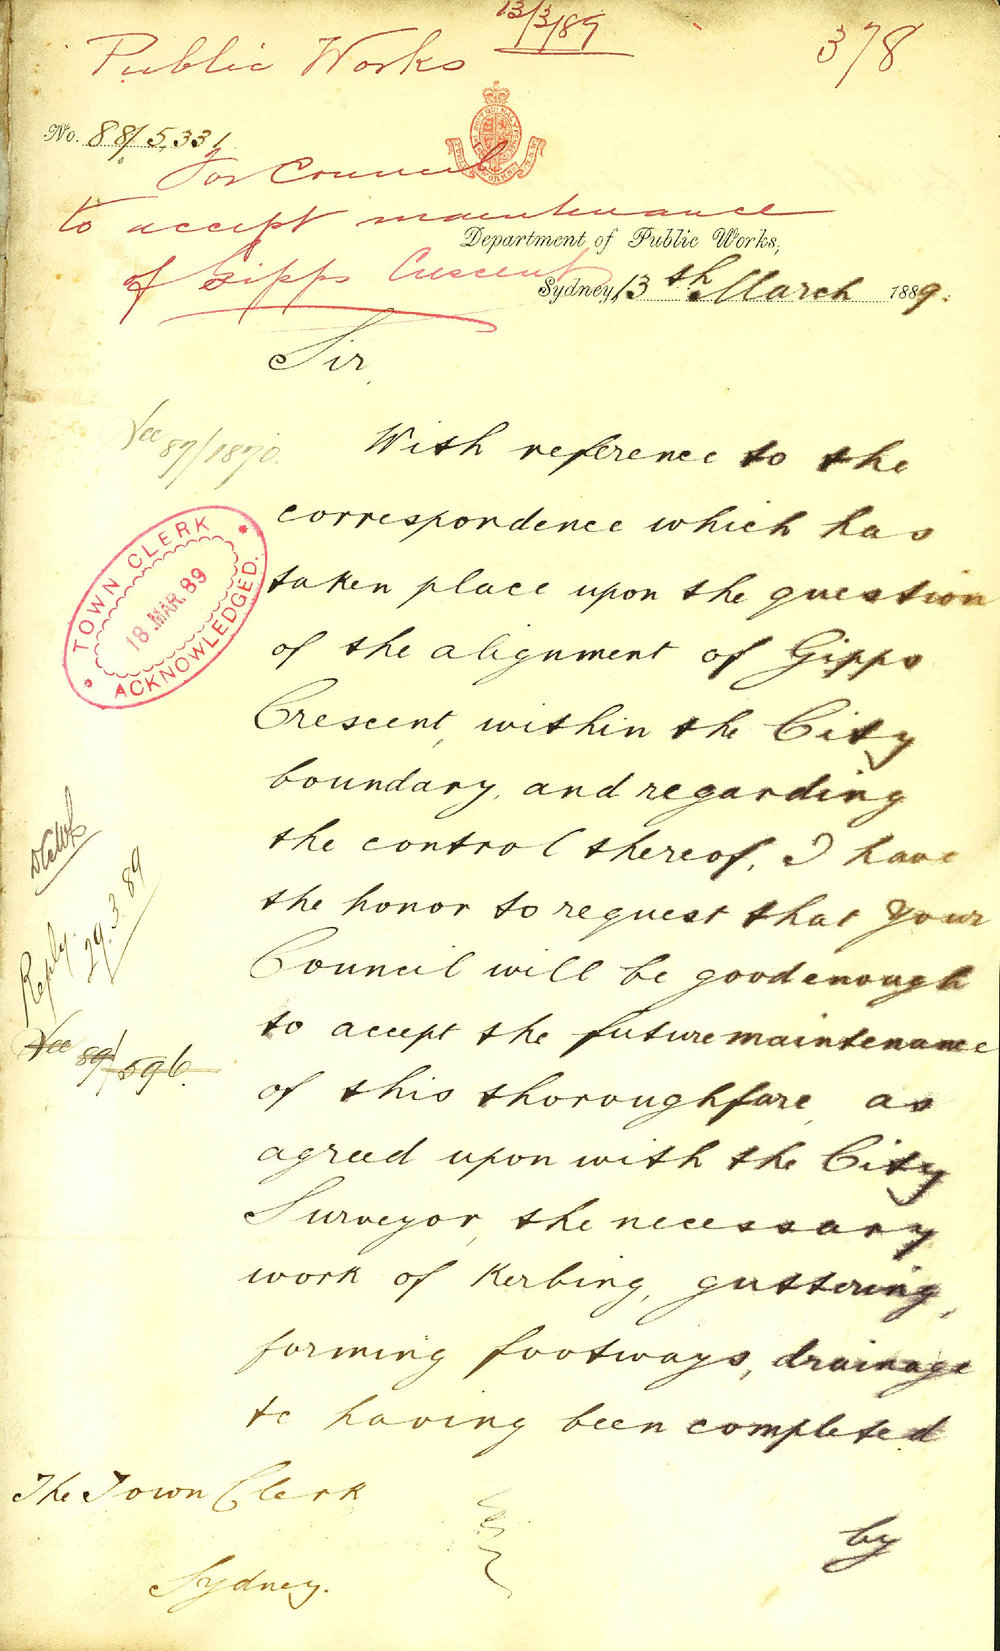 13/3/89
Public Works
378
No. 88/5,331
For Council
to accept maintenance
of Gipps Crescent
Department of Public Works,
Sydney, 13th March 1889.
Sir,
See 87/1870.
With reference to the
correspondence which has
taken place upon the question
of the alignment of Gipps
Crescent, within the City
boundary, and regarding
the control thereof, I have
the honor to request that your
Council will be good enough
to accept the future maintenance
of this thoroughfare, as
agreed upon with the City
Surveyor, the necessary
work of Kerbing, guttering,
forming footways, drainage
&c having been completed
by
The Town Clerk
Sydney.
TOWN CLERK
18 MAR. 89
ACKNOWLEDGED.
Reply.
29.3.89
See 89/596.